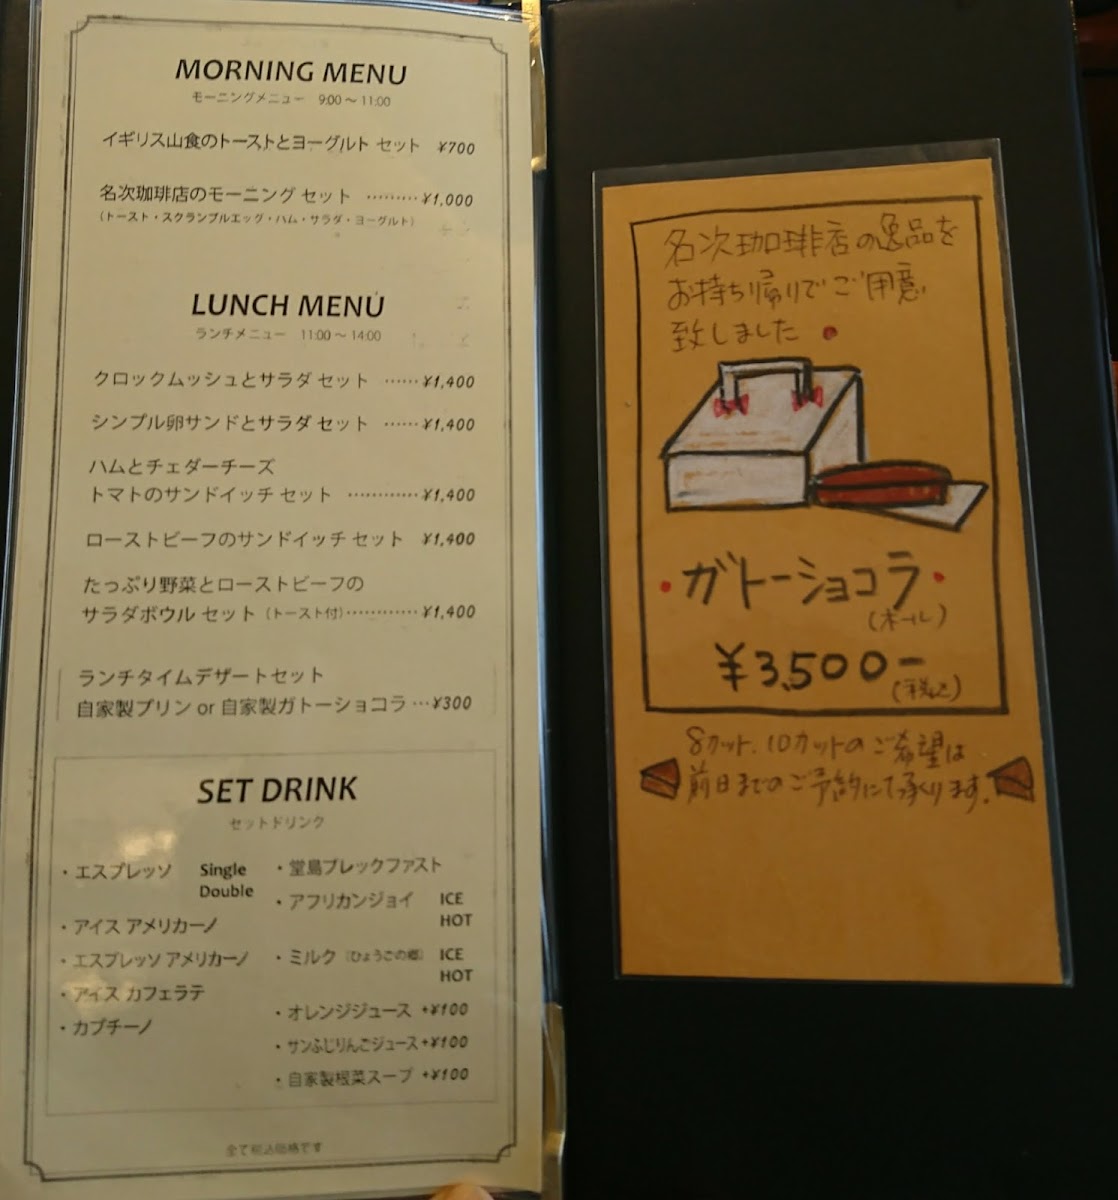 MORNING MENU
モーニングメニュー 9:00～11:00
イギリス山食のトーストとヨーグルト セット ¥700
名次珈琲店のモーニング セット ………¥1,000
（トースト・スクランブルエッグ・ハム・サラダ・ヨーグルト）
LUNCH MENU
ランチメニュー 11:00～14:00
クロックムッシュとサラダ セット ……¥1,400
シンプル卵サンドとサラダ セット ……¥1,400
ハムとチェダーチーズ
トマトのサンドイッチ セット …………¥1,400
ローストビーフのサンドイッチ セット ¥1,400
たっぷり野菜とローストビーフの
サラダボウル セット（トースト付）…………¥1,400
ランチタイムデザートセット
自家製プリン or 自家製ガトーショコラ …¥300
SET DRINK
セットドリンク
・エスプレッソ Single
Double
・アイス アメリカーノ
・エスプレッソ アメリカーノ
・アイス カフェラテ
・カプチーノ
・堂島ブレックファスト
・アフリカンジョイ ICE
HOT
・ミルク（ひょうごの郷） ICE
HOT
・オレンジジュース +¥100
・サンふじりんごジュース +¥100
・自家製根菜スープ +¥100
全て税込価格です
名次珈琲店の逸品を
お持ち帰りでご用意
致しました
・ガトーショコラ・
（ホール）
¥3,500-
（税込）
8カット、10カットのご希望は
前日までのご予約にて承ります。